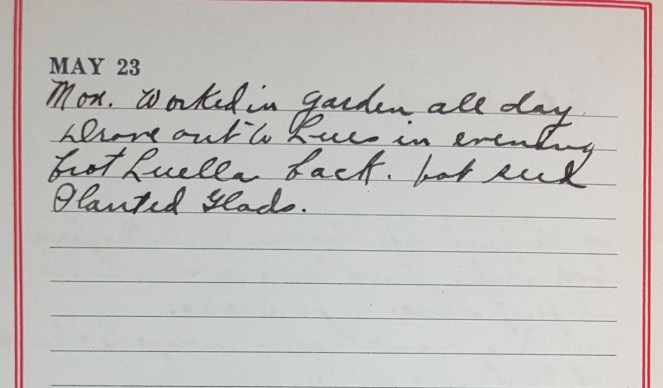 MAY 23
Mon. Worked in garden all day.
Drove out to Lues in evening
brot Luella back. pot seed
Planted Glads.